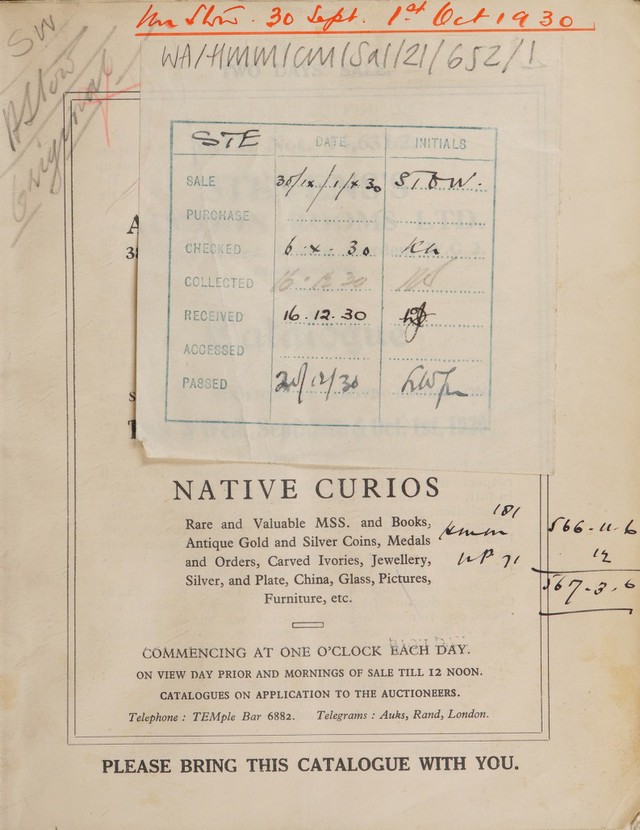 Mr Stow. 30 Sept. 1st Oct 1930
WA/HMM/CM/Sal/21/652/1
SW
A Stow
Original
STE DATE INITIALS
SALE 30/ix/1/x 30 STOW.
PURCHASE
CHECKED 6 - x - 30
COLLECTED 16.12.30
RECEIVED 16.12.30
ACCESSED
PASSED 20/12/30
NATIVE CURIOS
Rare and Valuable MSS. and Books,
Antique Gold and Silver Coins, Medals
and Orders, Carved Ivories, Jewellery,
Silver, and Plate, China, Glass, Pictures,
Furniture, etc.
181
Hmm 566-11-6
12
567-3-6
COMMENCING AT ONE O'CLOCK EACH DAY.
ON VIEW DAY PRIOR AND MORNINGS OF SALE TILL 12 NOON.
CATALOGUES ON APPLICATION TO THE AUCTIONEERS.
Telephone : TEMple Bar 6882. Telegrams : Auks, Rand, London.
PLEASE BRING THIS CATALOGUE WITH YOU.